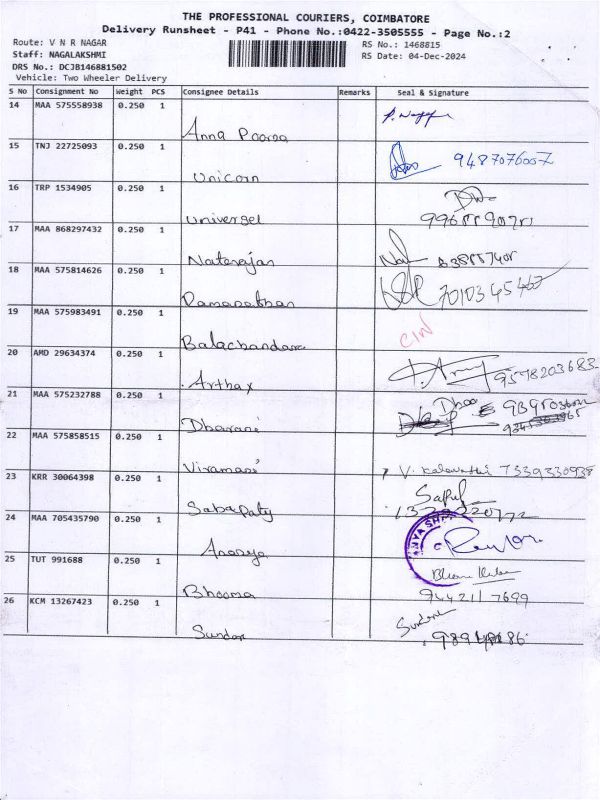 THE PROFESSIONAL COURIERS, COIMBATORE
Delivery Runsheet - P41 - Phone No.:0422-3505555 - Page No.:2
Route: V N R NAGAR
RS No.: 1468815
Staff: NAGALAKSHMI
RS Date: 04-Dec-2024
DRS No.: DCJB146881502
Vehicle: Two Wheeler Delivery
S No Consignment No Weight PCS Consignee Details Remarks Seal & Signature
14 MAA 575558938 0.250 1
Anna Poorna
15 TNJ 22725093 0.250 1 9487076007
Unicorn
16 TRP 1534905 0.250 1
Universel
17 MAA 868297432 0.250 1
Natarajan
18 MAA 575814626 0.250 1 7010345467
Ramanathan
19 MAA 575983491 0.250 1
Balachandara
20 AMD 29634374 0.250 1 9578203683
Arthax
21 MAA 575232788 0.250 1
Dharani
22 MAA 575858515 0.250 1
Viramani V. Kalavathi 7339330938
23 KRR 30064398 0.250 1
Sabapaty
24 MAA 705435790 0.250 1
Ananya
25 TUT 991688 0.250 1
Bhooma 9442117699
26 KCM 13267423 0.250 1
Sundar